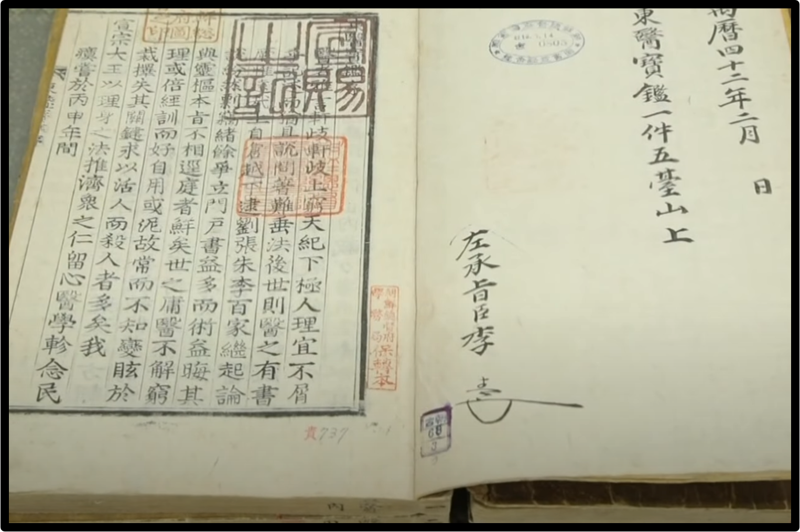 曆四十二年二月 日
東醫寶鑑一件五臺山上
左承旨臣李
軒岐軒岐上窮天紀下極人理宜不屑
而猶且說問著難垂法後世則醫之有書
上自倉越下逮劉張朱李百家繼起論
緖餘爭立門戶書益多而術益晦其
與靈樞本旨不相逕庭者鮮矣世之庸醫不解窮
理或倍經訓而好自用或泥故常而不知變眩於
裁擇失其關鍵求以活人而殺人者多矣我
宣宗大王以理身之法推濟衆之仁留心醫學軫念民
瘼嘗於丙申年間
宣賜之記
貴737